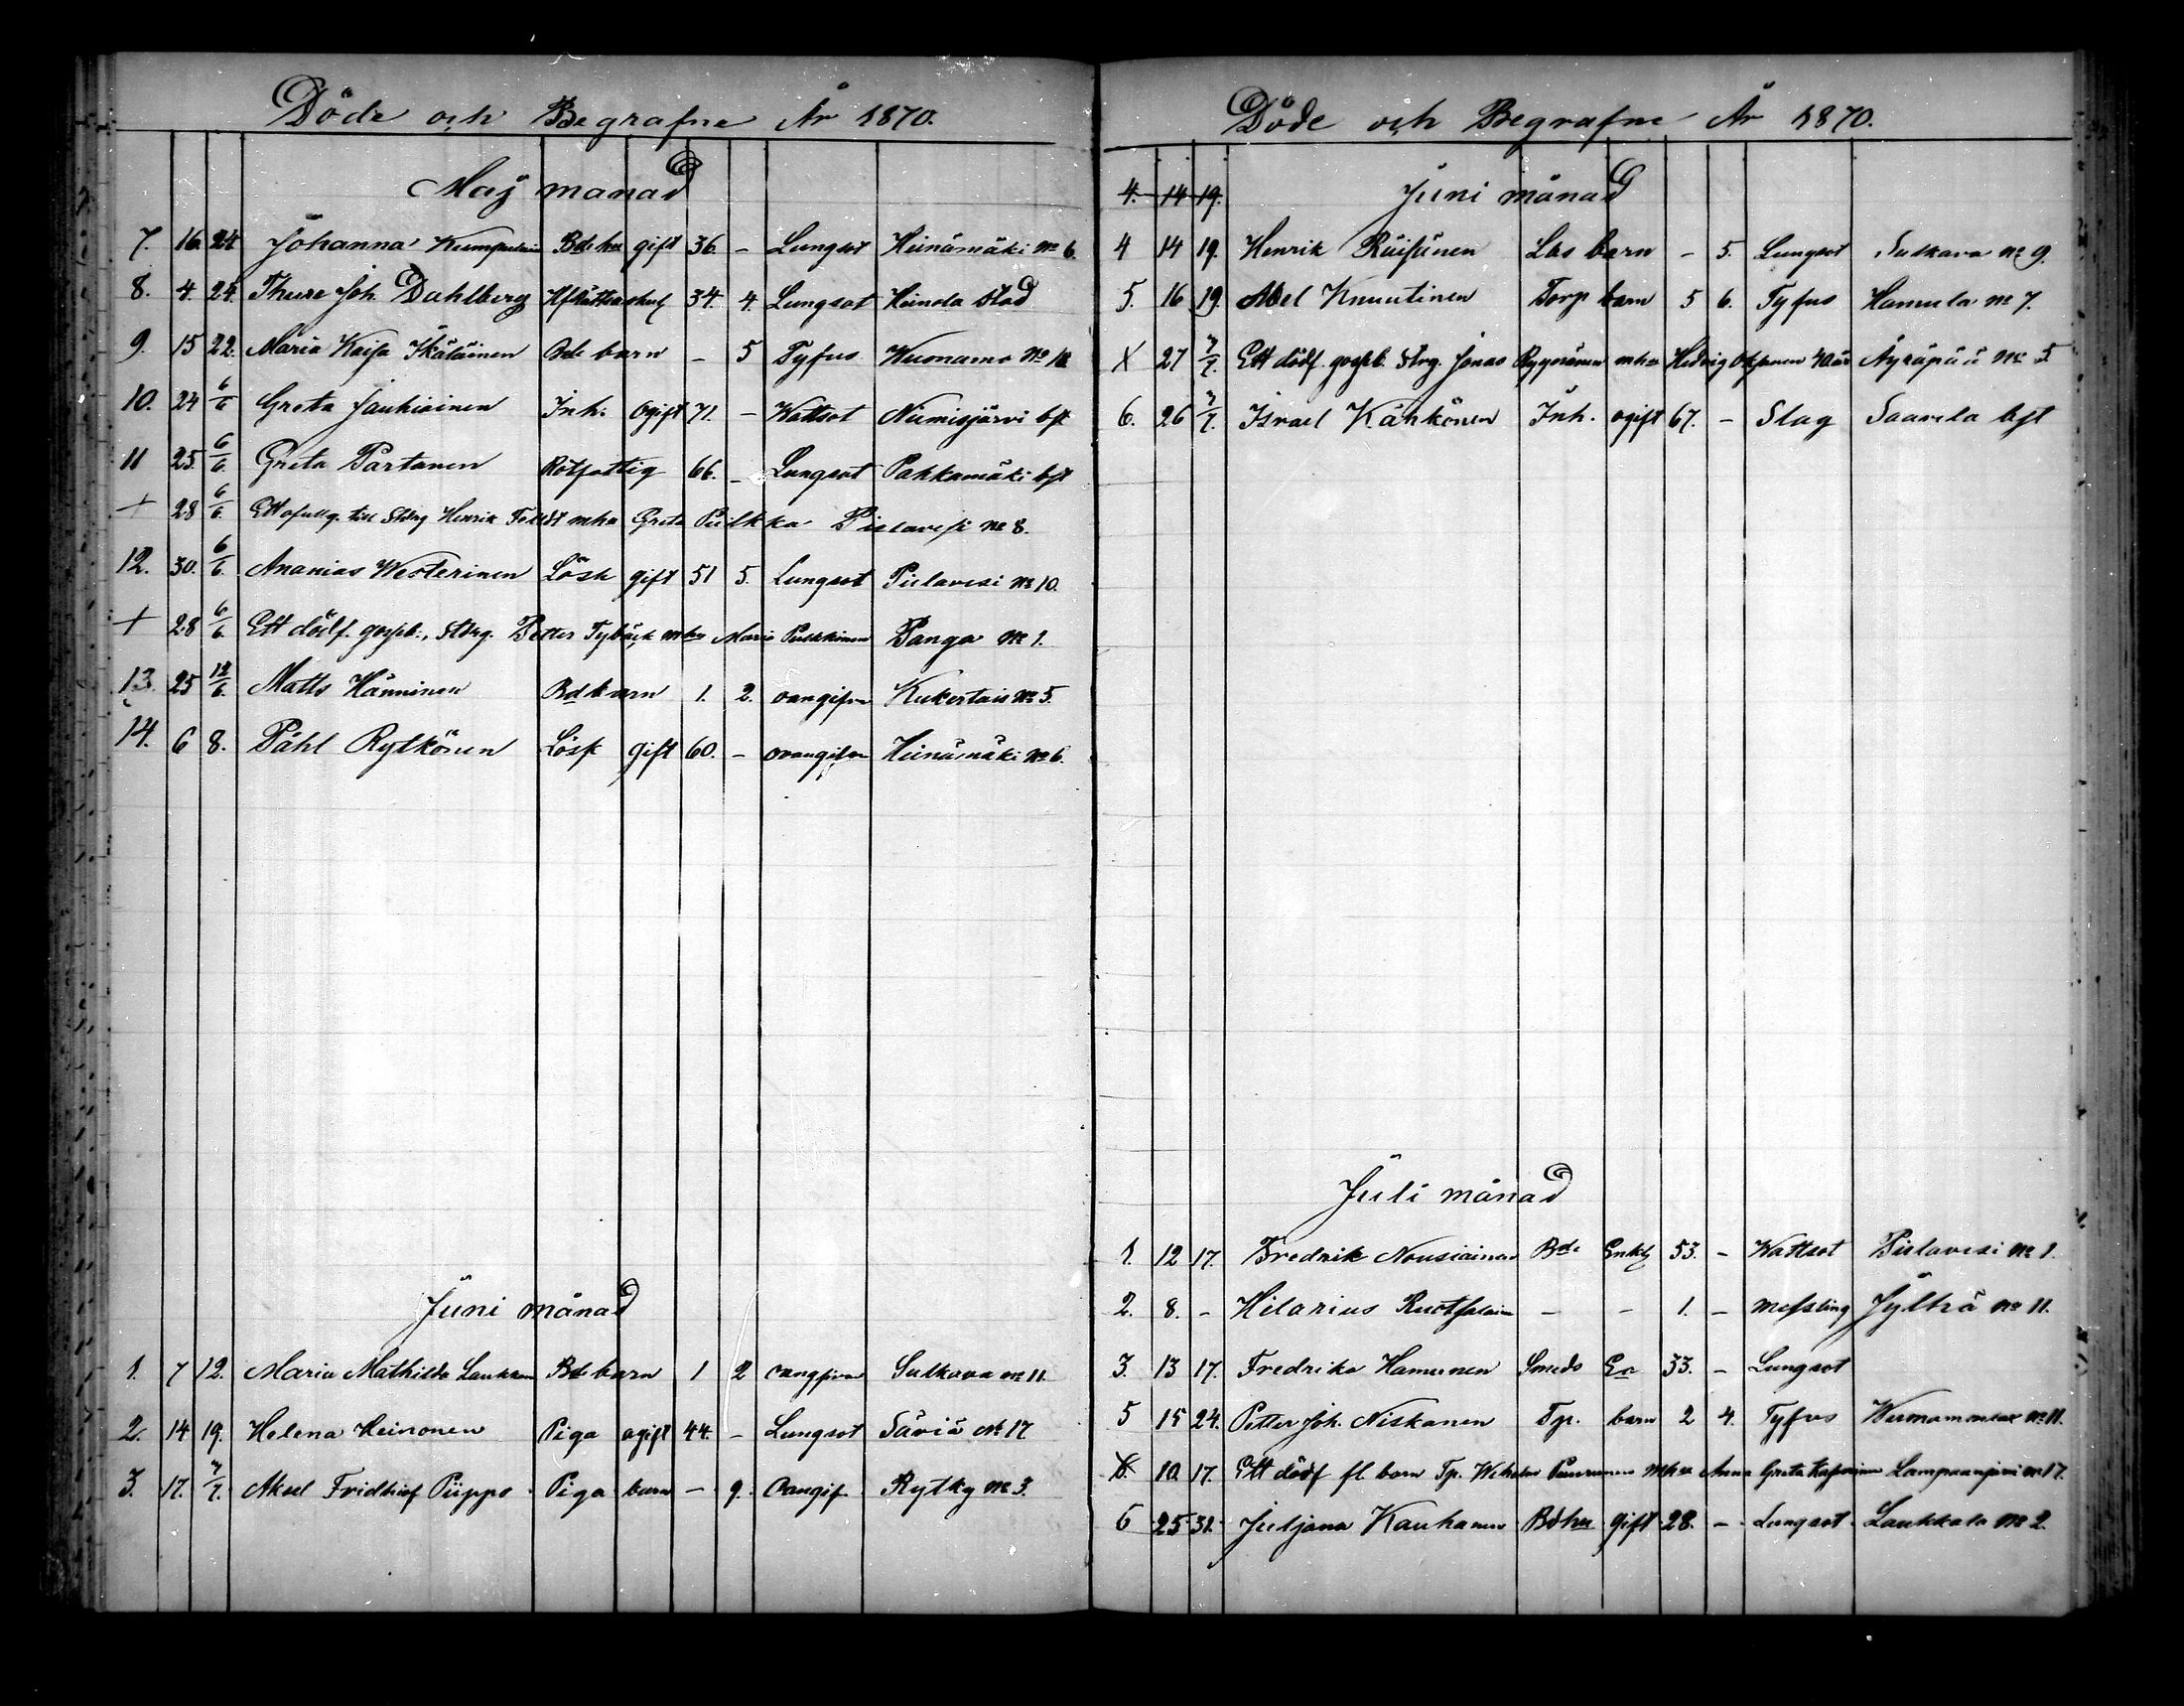 Döde och Begrafne År 1870.
Maj manad
7. 16 24 Johanna Kumpulain Bde hu gift 36. - Lungsot Heinämäki No 6.
8. 4. 24. Thure Joh. Dahlberg 34. 4. Lungsot Heinola Stad
9. 15 22. Maria Kaisa Ikäläinen Bde barn - 5 Tyfus Wuonamo No
10. 24 6/6 Greta Jauhiainen Inh. Ogift 71. - Wattsot Numisjärvi bst
11 25. 6/6. Greta Partanen Rotfattig 66. - Lungsot Pahkamäki bst
+ 28 6/6. Ett ofullg. till Stdrg Henrik mhu Greta Pulkka Pielavesi No 8.
12. 30. 6/6. Ananias Westerinen Lösk gift 51 5. Lungsot Pielavesi No 10.
+ 28 6/6. Ett dödf. gossb., Stdrg. Petter Tybäck mhu Maria Pulkkinen Panga No 1.
13. 25 12/6. Matts Hänninen Bd barn 1. 2. oangifven No 5.
14. 6 8. Påhl Rytkönen Lösk gift 60. - oangifven Heinämäki No 6.
Juni månad
1. 7 12. Maria Mathilda Laukkan Bde barn 1 2 oangifven Sulkava No 11.
2. 14 19. Helena Heinonen Piga ogift 44. - Lungsot Säviä No 17
3. 17. 3/7. Aksel Fridthiof Piippo Piga barn - 9. Oangif. Rytky No 3.
Döde och Begrafne År 1870.
4. 14 19. Juni månad
4 14 19. Henrik Ruissinen Lös barn - 5. Lungsot Sulkava No 9.
5. 16 19. Abel Knuutinen Torp barn 5 6. Tyfus Hamula No 7.
X 27 3/7. Ett dödf. gossb. Strg. Jonas Ryynänen mhu Hedvig 40 år Äyräpää No 5
6. 26 3/7. Israel Kähkönen Inh. ogift 67. - Slag Saarela bst
Juli månad
1. 12 17. Fredrik Nousiainen Bde Enkl 53. - Wattsot Pielavesi No 1.
2. 8. - Hilarius Ruotsalain - - 1. - messling Jylhä No 11.
3. 13 17. Fredrika Hamunen Smeds Ea 33. - Lungsot
5 15 24. Petter Joh. Niskanen Tp. barn 2 4. Tyfus No 11.
X. 10 17. Ett dödf fl barn Tp. Wilhelm Puurunen Mhu Anna Greta No 17.
6 25 31. Juljana Kauhanen Bdhu gift 28. - Lungsot Laukkala No 2.